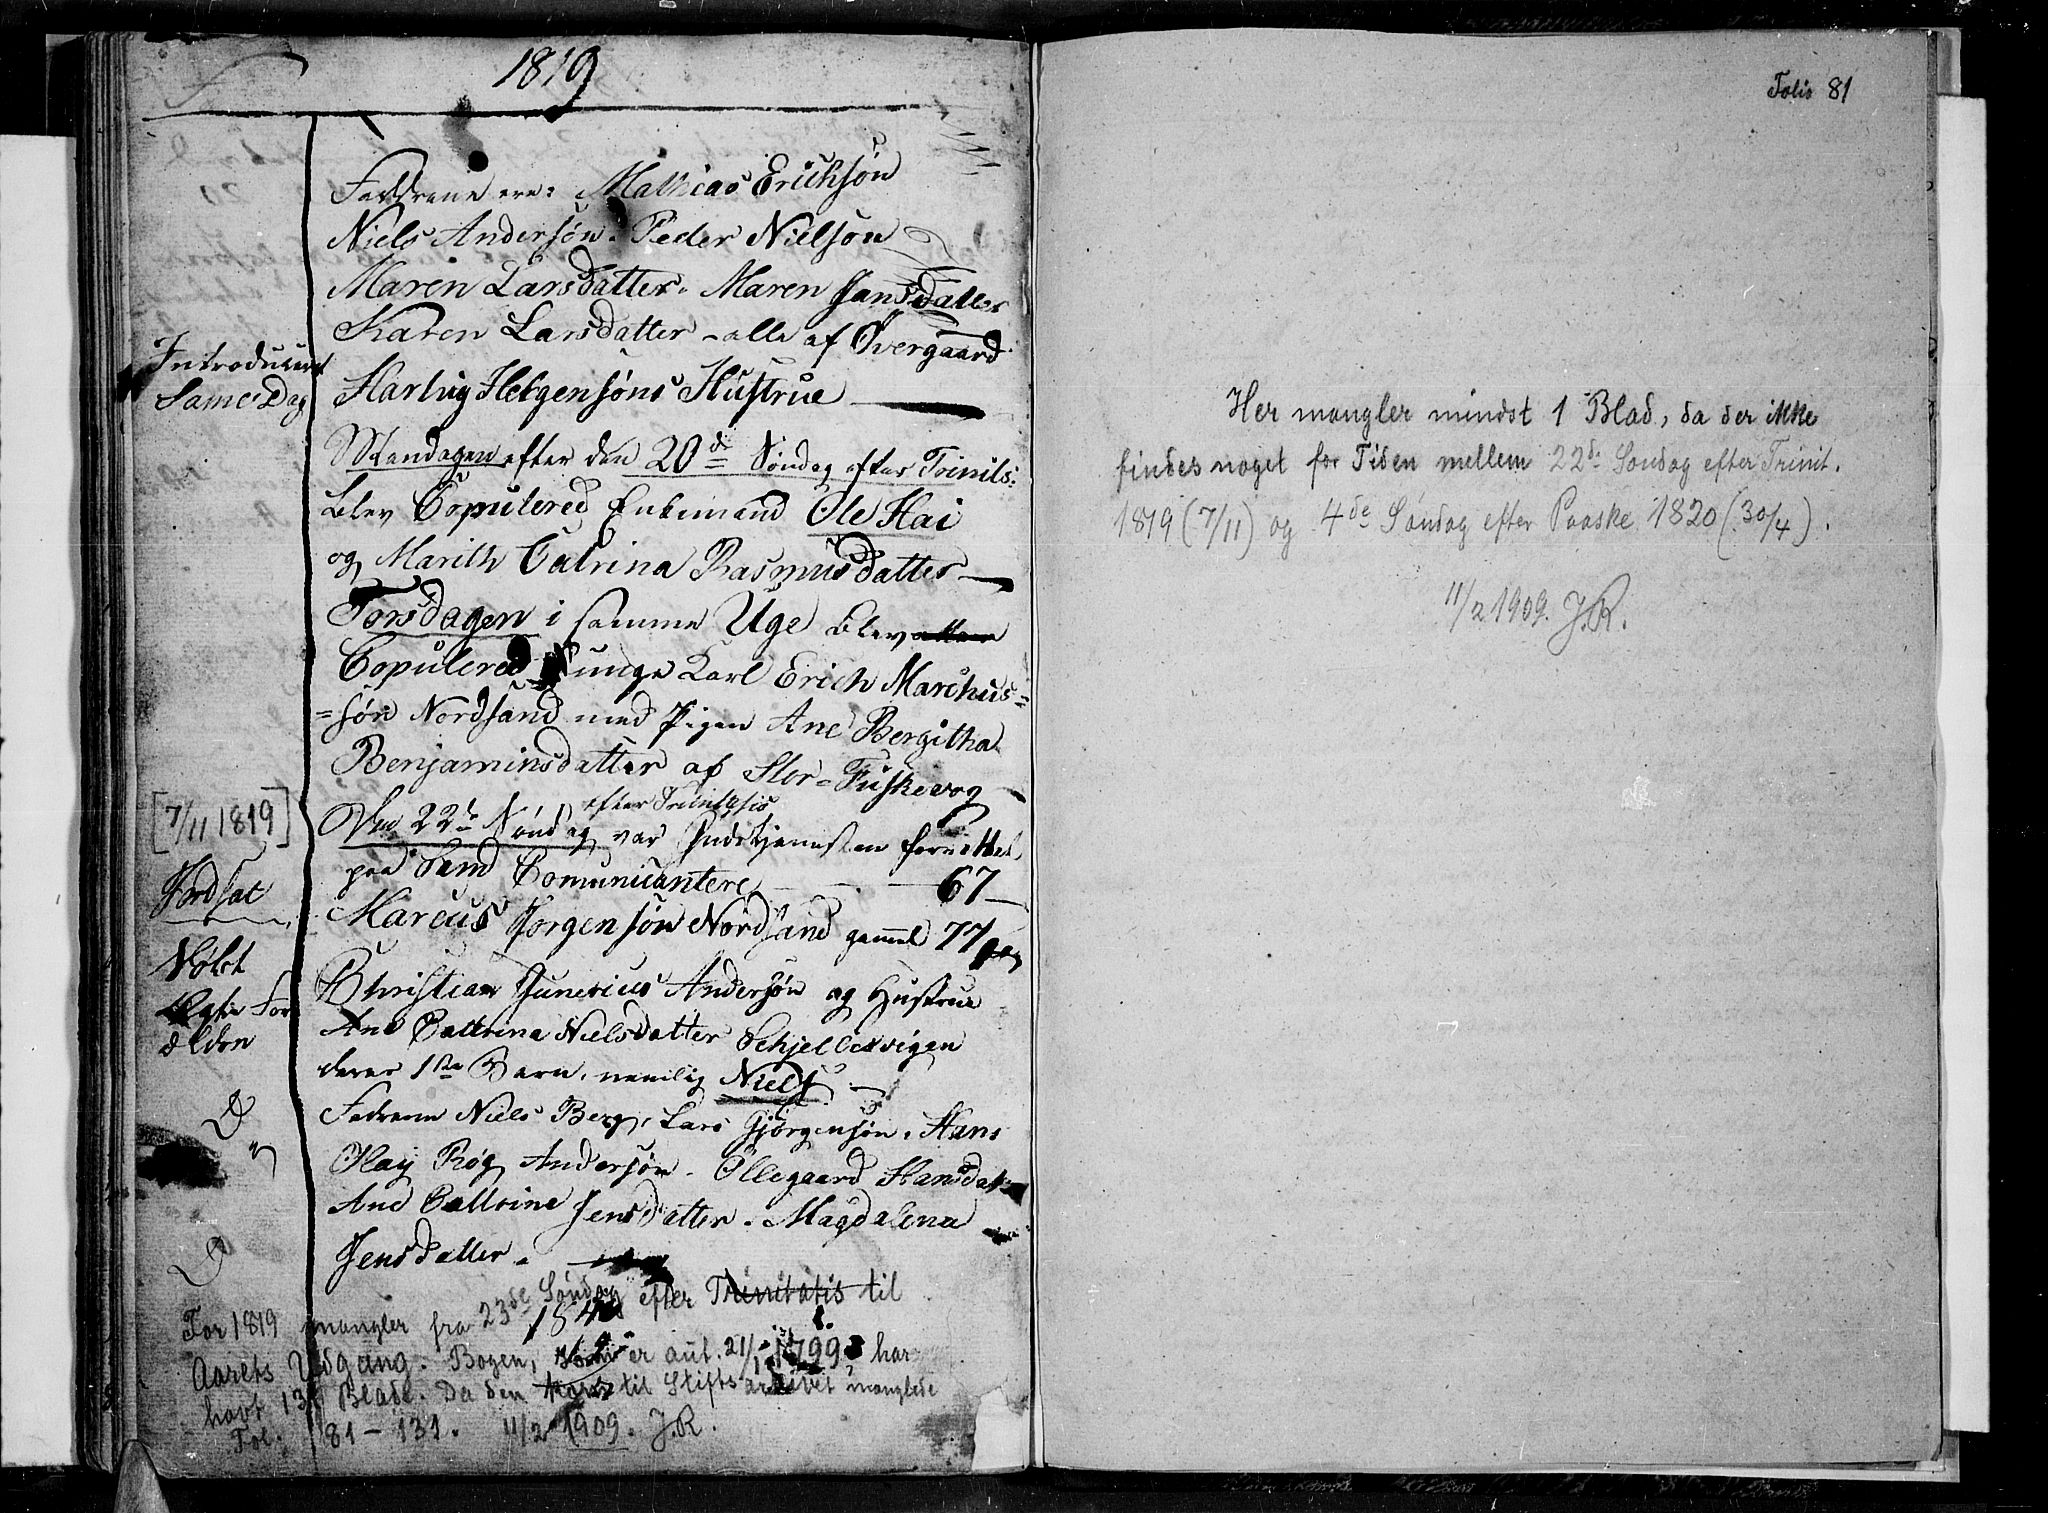 1819
Faddrene ere: Mathias Erichsøn
Niels Andersøn. Peder Nielsøn
Maren Larsdatter. Maren Jansdatter
Karen Larsdatter - alle af Øvergaard
Introduceret
Same Dag
Hartvig Helgensøns Hustrue
Mandagen efter den 20de Søndag efter Trinits:
blev Copulered Enkemand Ole Hai
og Marith Catrina Rasmusdatter
Torsdagen i samme Uge blev
Copulered unge Karl Erich Marchus=
=søn Nordsand med Pigen Ane Bergitha
Benjaminsdatter af Stor-Fiskevog
[7/11 1819]
Den 22de Søndag efter Trinitatis var Gudstjenesten forrettet
paa Sand Comunicantere 67
Jordsat
Marcus Jørgensøn Nordsand gammel 77
Døbt
Ægte For
ældre
Christian Junerius Andersøn og Hustrue
Ane Cattrina Nielsdatter Schjellesvigen
deres 1ste Barn, nemlig Niels
Fadrene Niels Berg, Lars Gjørgensøn. Hans
Olay Røg Andersøn. Ollegaard Hansdat
Ane Cattrine Jensdatter. Magdalena
Jensdatter.
For 1819 mangler fra 23de Søndag efter Trinitatis til
Aarets Udgang. Bogen, er aut. 21/1 1799 har
havt 131 Blade. Da den kom til Stiftsarkivet manglede
Fol. 81-131. 11/2 1909. J.R.
Folio 81
Her mangler mindst 1 Blad, da der ikke
findes noget for Tiden mellem 22de Søndag efter Trinit.
1819 (7/11) og 4de Søndag efter Paaske 1820 (30/4).
11/2 1909. J.R.